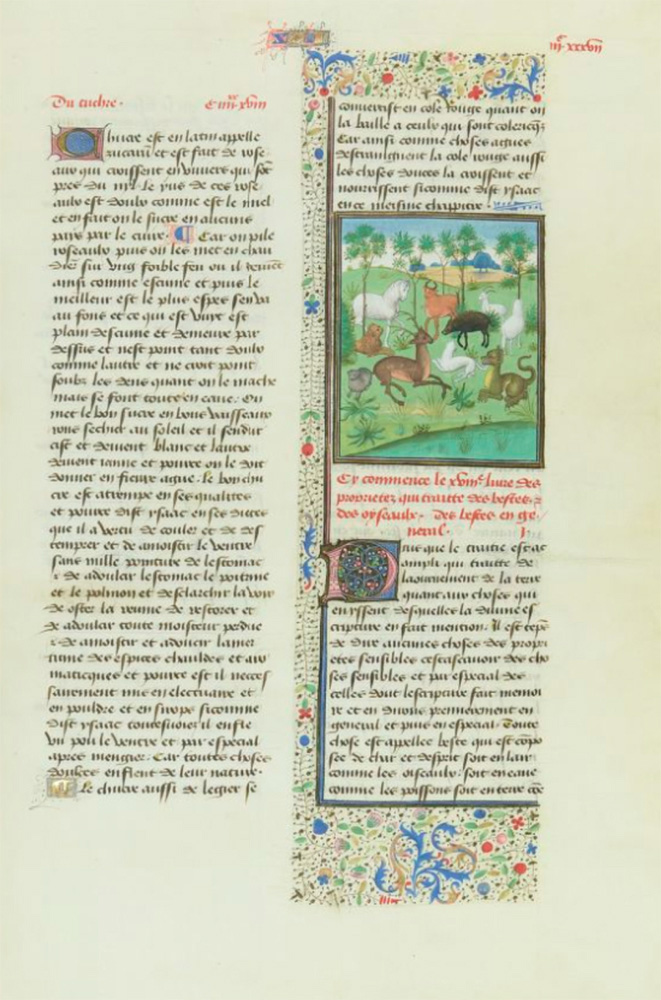 Du cuchre. C iiii xviii
Chucre est en latin appelle
zucara et est fait de rose
aux qui croissent en viviers qui sont
pres du nil. Le yus de ces rose
aulx est doulx comme est le miel
et en fait on le sucre en aucuns
pays par le cuire. Car on pile
roseaulx puis on les met en chau
diere sur ung foible feu ou il devient
ainsi comme escume et puis le
meilleur est le plus espes sen va
au fons et ce qui est vuyt est
plain descume et demeure par
dessus et nest point tant doulx
comme lautre et ne croit point
soubz les dens quant on le mache
mais se font toute en eaue. On
met le bon sucre en bons vaisseaux
rons sechier au soleil et il sendur
cist et devient blanc et lautre
devient iaune et povre on le doit
donner en fievre ague. Le bon chu
cre est atrempe en ses qualites
et povre dist ysaac en ses dietes
que il a vertu de couler et de des
temprer et de amoistir le ventre
sans mille pointure de lestomac
et de adoulcir lestomac le poitrine
et le polmon et desclarcir la voix
de oster la reume de restorer et
de adoulcir toute moisteur perdue
et de amoistir et adoucir lamer
tume des espices chauldes et aro
maticques et pource est il neces
sairement mis en electuaire et
en pouldre et en sirops si comme
dist ysaac toutesvoies il enfle
un pou le ventre et par especial
apres mengier. Car toutes choses
doulces enflent de leur nature.
Le chucre aussi de legier se
iii xxxvii
convertist en cole rouge quant on
la baille a ceulx qui sont colericqz
Car ainsi comme choses agues
destraingnent la cole rouge aussi
les choses doulces la croissent et
nourrissent si comme dist ysaac
en ce mesme chappitre.
Cy commence le xviiie livre des
proprietez qui traitte des bestes et
des oyseaulx. Des bestes en ge
neral. I
Puis que le traitie est ac
compli qui traitte de
laournement de la terre
quant aux choses qui
en yssent desquelles la divine es
cripture en fait mencion. Il est temps
de dire aucunes choses des propri
etes sensibles cestassavoir des cho
ses sensibles et par especial des
celles dont lescripture fait memoi
re et en dirons premierement en
general et puis en especial. Toute
chose est appellee beste qui est compo
see de char et desprit soit en lair
comme les oiseaulx soit en eaue
comme les poissons soit en terre come